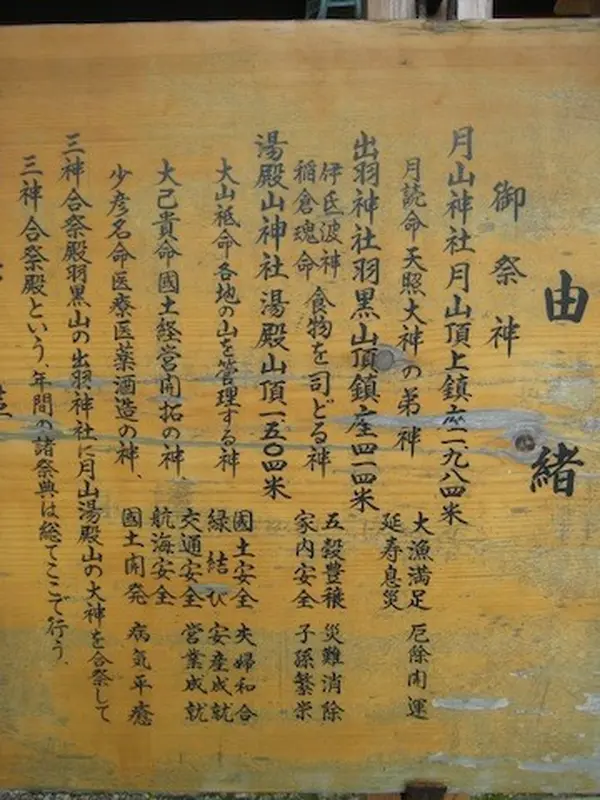 由緒
御祭神
月山神社月山頂上鎮座一、九八四米
月読命天照大神の弟神
大漁満足 厄除開運
延寿息災
出羽神社羽黒山頂鎮座四一四米
伊氐波神
稲倉魂命
食物を司どる神
五穀豊穣 災難消除
家内安全 子孫繁栄
湯殿山神社湯殿山頂一、五〇四米
大山祗命各地の山を管理する神
國土安全 夫婦和合
緑結び 安産成就
大己貴命國土経営開拓の神
交通安全 営業成就
航海安全
少彦名命医療医薬酒造の神、
國土開発 病気平癒
三神合祭殿羽黒山の出羽神社に月山湯殿山の大神を合祭して
三神合祭殿という、年間の諸祭典は総てここで行う、